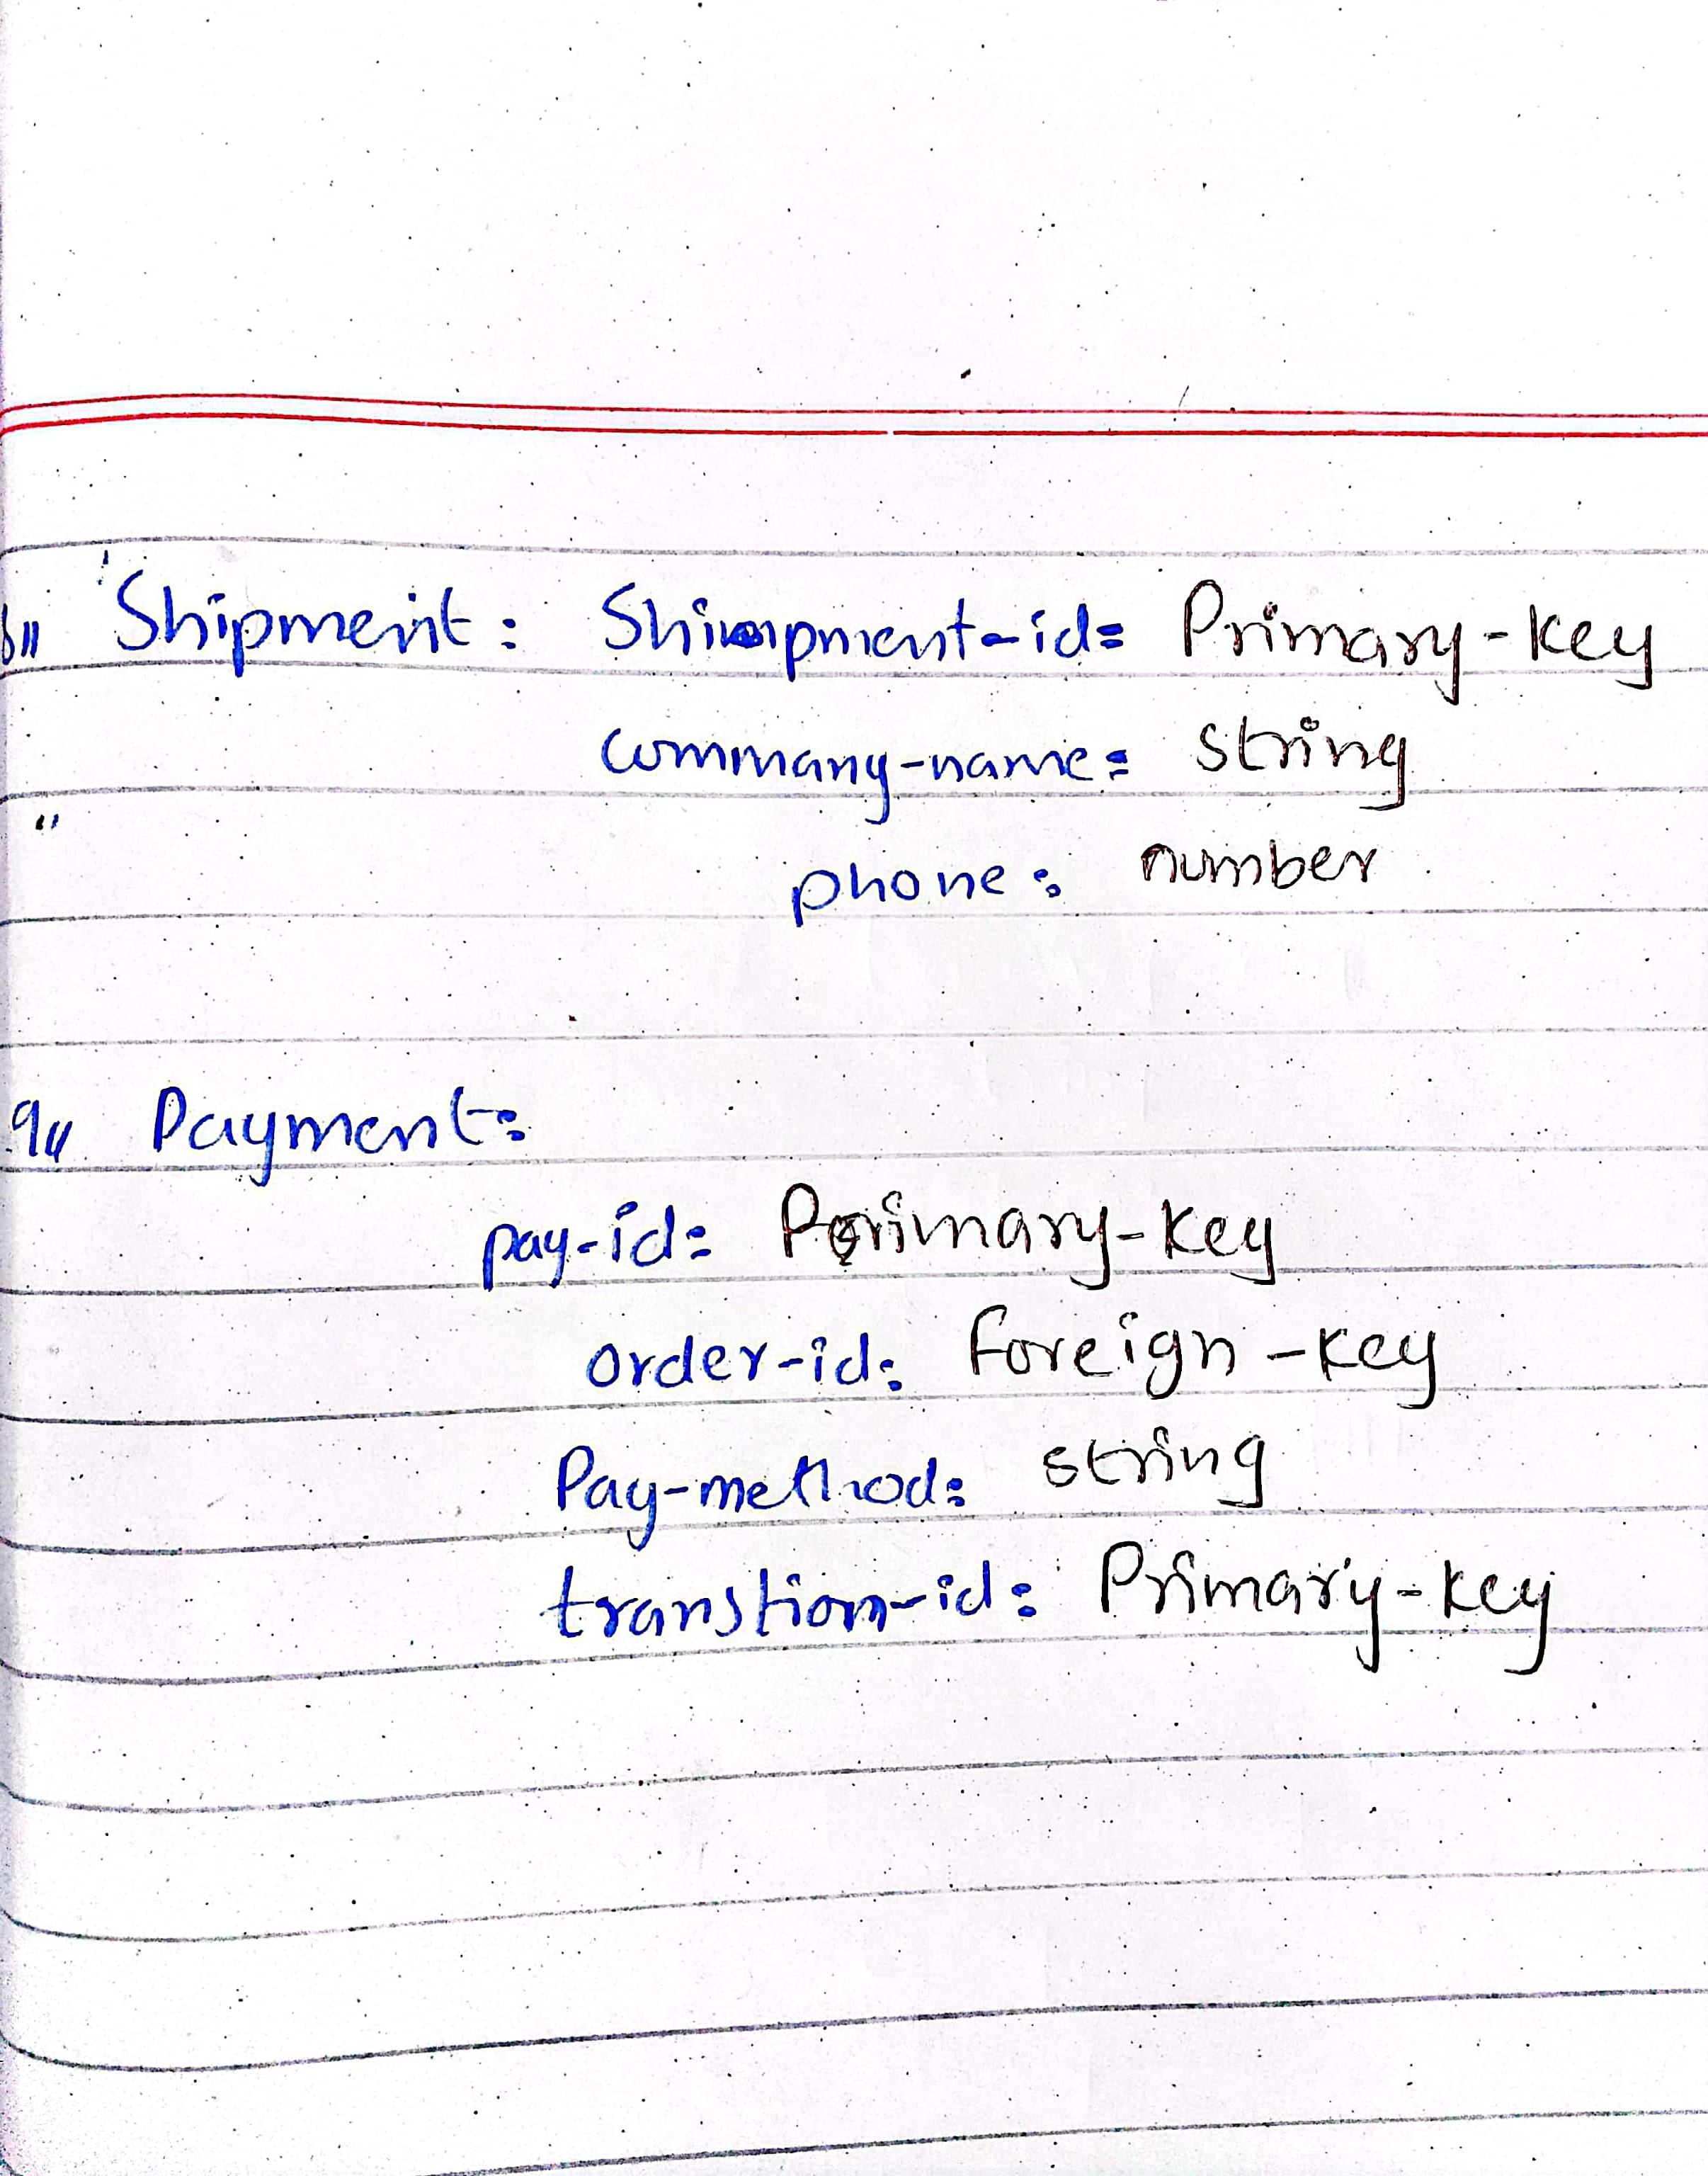 Shipment: Shipment-id: Primary-key
commany-name: string
phone: number
9" Payment:
pay-id: Primary-key
order-id: foreign-key
Pay-method: string
transtion-id: Primary-key